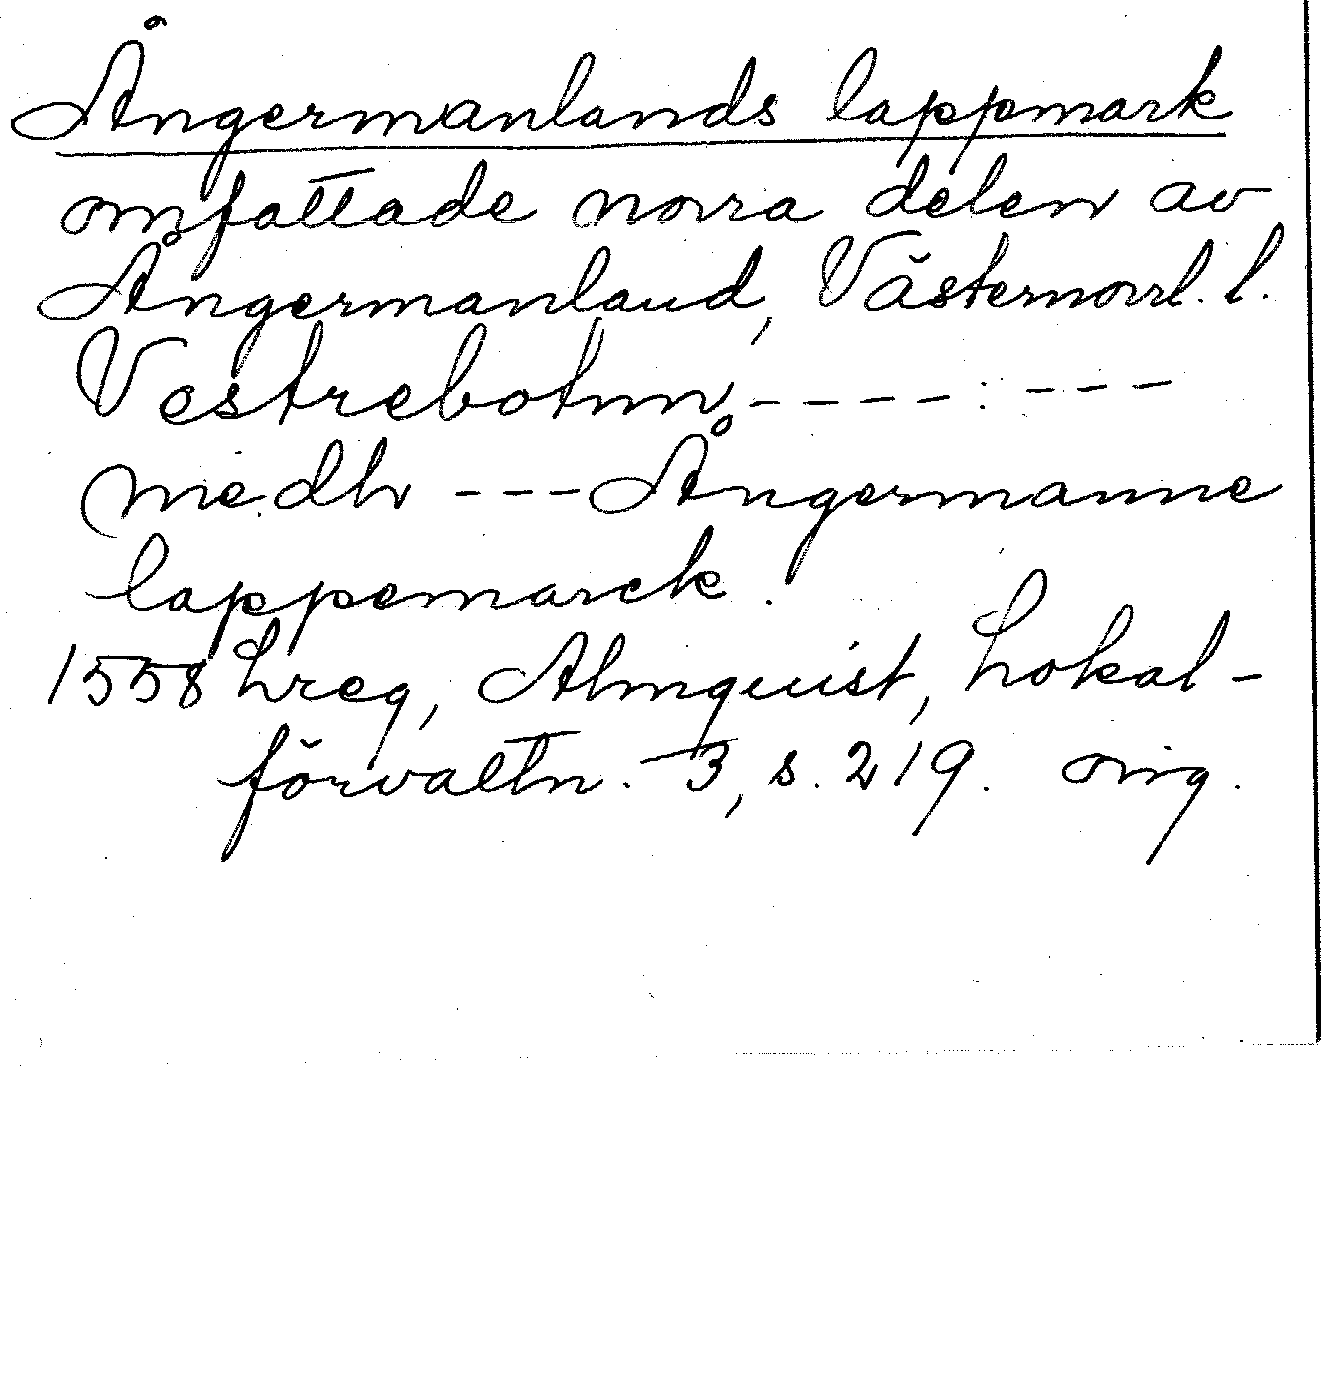 Ångermanlands lappmark
omfattade norra delen av
Ångermanland, Västernorrl. l.
Vestrebotnn - - - - : - - -
medh - - - Ångermanne
lappemarck.
1558 Lreg, Almquist, Lokal-
förvaltn. 3, s. 219. orig.